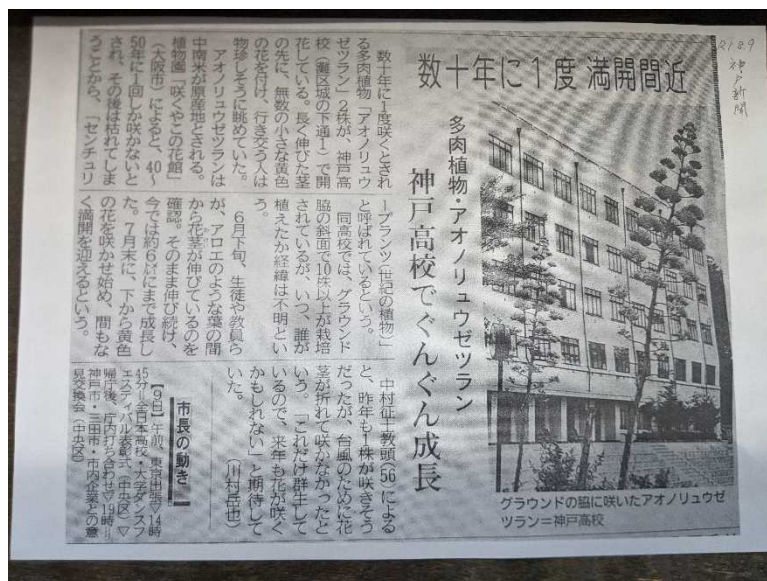 神戸新聞
数十年に1度 満開間近
多肉植物・アオノリュウゼツラン
神戸高校でぐんぐん成長
グラウンドの脇に咲いたアオノリュウゼ
ツラン=神戸高校
数十年に1度咲くとされ
る多肉植物「アオノリュウ
ゼツラン」2株が、神戸高
校(灘区城の下通1)で開
花している。長く伸びた茎
の先に、無数の小さな黄色
の花を付け、行き交う人は
物珍しそうに眺めていた。
アオノリュウゼツランは
中南米が原産地とされる。
植物園「咲くやこの花館」
(大阪市)によると、40〜
50年に1回しか咲かないと
され、その後は枯れてしま
うことから、「センチュリ
ープランツ(世紀の植物)」
と呼ばれているという。
同高校では、グラウンド
脇の斜面で10株以上が栽培
されているが、いつ、誰が
植えたか経緯は不明とい
う。
6月下旬、生徒や教員ら
が、アロエのような葉の間
から花茎が伸びているのを
確認。そのまま伸び続け、
今では約6㍍にまで成長し
た。7月末に、下から黄色
の花を咲かせ始め、間もな
く満開を迎えるという。
中村征士教頭(56)による
と、昨年も1株が咲きそう
だったが、台風のために花
茎が折れて咲かなかったと
いう。「これだけ群生して
いるので、来年も花が咲く
かもしれない」と期待して
いた。
(川村岳也)
市長の動き
【9日】午前、東京出張▽14時
45分=全日本高校・大学ダンスフ
ェスティバル表彰式(中央区)▽
帰庁後、庁内打ち合わせ▽19時=
神戸市・三田市・市内企業との意
見交換会(中央区)